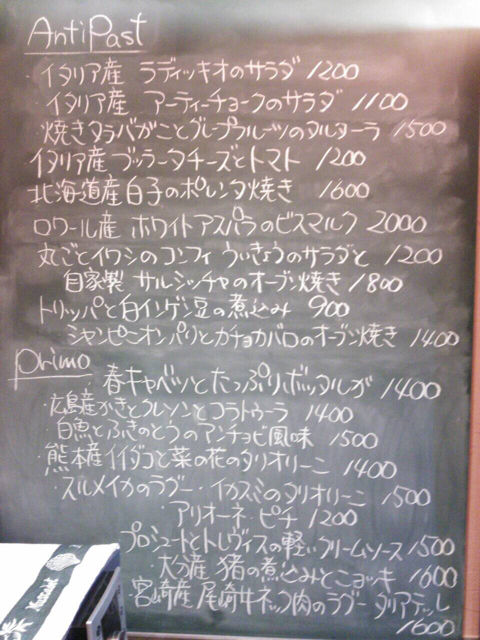 AntiPast
・イタリア産 ラディッキオのサラダ 1200
・イタリア産 アーティーチョークのサラダ 1100
焼きタラバがことグレープフルーツのタルターラ 1500
イタリア産 ブッラータチーズとトマト 1200
北海道産白子のポレンタ焼き 1600
ロワール産 ホワイトアスパラのビスマルク 2000
丸ごとイワシのコンフィ ういきょうのサラダと 1200
自家製 サルシッチャのオーブン焼き 1800
トリッパと白インゲン豆の煮込み 900
シャンピニオンパリとカチョカバロのオーブン焼き 1400
primo
春キャベツとたっぷりボッタルガ 1400
・広島産かきとクレソンとコラトゥーラ 1400
・白魚とふきのとうのアンチョビ風味 1500
熊本産イイダコと菜の花のタリオリーニ 1400
・スルメイカのラグー・イカスミのタリオリーニ 1500
アリオーネ・ピチ 1200
プロシュートとトレヴィスの軽いクリームソース 1500
・大分産 猪の煮込みとニョッキ 1600
・宮崎産 尾崎牛ネック肉のラグー タリアテッレ
1600